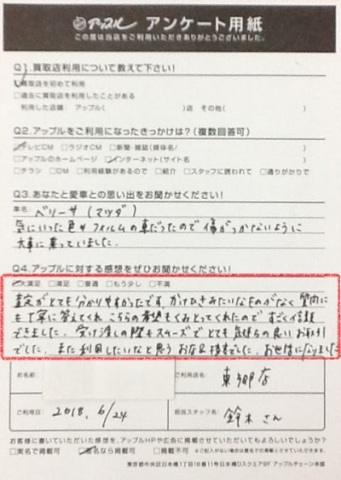 アップル アンケート用紙
この度は当店をご利用いただきありがとうございました。
Q1.買取店利用について教えて下さい!
買取店を初めて利用
過去に買取店を利用したことがある
利用した店舗: アップル( )店 その他( )
Q2.アップルをご利用になったきっかけは?(複数回答可)
テレビCM ラジオCM 新聞・雑誌(媒体名/ )
アップルのホームページ インターネット(サイト名 )
チラシ DM 利用経験があるので 紹介 スタッフに誘われて 通りがかりで
Q3.あなたと愛車との思い出をお聞かせください!
車名 ベリーサ(マツダ)
気にいった色やフォルムの車だったので傷がつかないように
大事に乗っていました。
Q4.アップルに対する感想をぜひお聞かせください!
大満足 満足 普通 もう少し 不満
査定がとても分かりやすかったです。かけひきみたいなものがなく質問に
も丁寧に答えてくれ、こちらの希望もくみとってくれたのですごく信頼
できました。受け渡しの際もスムーズでとても気持ちの良いお取引
でした。また利用したいなと思うお店と接客でした。お世話になりました
お名前
ご利用店名
東郷店
ご利用日
2018. 6/24
担当スタッフ名
鈴木さん
お客様に書いていただいた感想を、アップルHPや広告に掲載させていただいてもよろしいでしょうか?
実名で掲載可 匿名なら掲載可 掲載不可
東京都中央区日本橋1丁目16番11号日本橋Dスクエア8F アップルチェーン本部